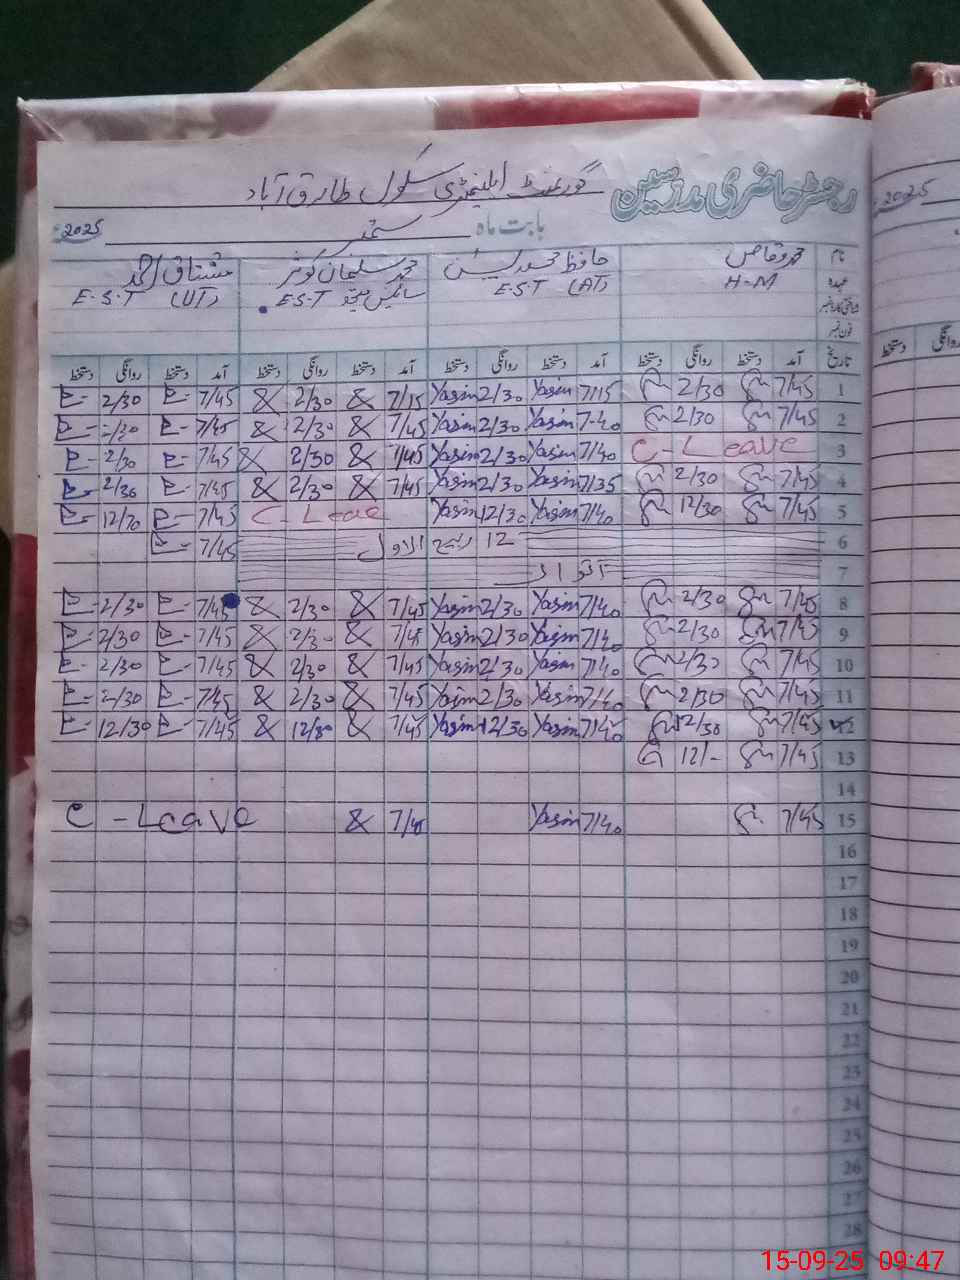 رجسٹر حاضری مدرسین گورنمنٹ ایلیمنٹری سکول طارق آباد
بابت ماہ ستمبر 2025
نام محمد وقاص حافظ محمد یٰسین محمد سلیمان کوثر مشتاق احمد
عہدہ H-M E.S.T (AT) E.S.T سائنس میتھ E.S.T
فون نمبر
تاریخ آمد دستخط روانگی دستخط آمد دستخط روانگی دستخط آمد دستخط روانگی دستخط آمد دستخط روانگی دستخط
1 7/45 2/30 7/15 Yasin 2/30 Yasin 7/15 & 2/30 & 7/45 2/30
2 7/45 2/30 7-40 Yasin 2/30 Yasin 7/45 & 2/30 & 7/45 2/30
3 C-Leave 7/40 Yasin 2/30 Yasin 7/45 & 2/30 & 7/45 2/30
4 7/45 2/30 7/35 Yasin 2/30 Yasin 7/45 & 2/30 & 7/45 2/30
5 7/45 12/30 7/40 Yasin 12/30 Yasin C-Leave 7/45
6 12 ربیع الاول 7/45
7 اتوار
8 7/45 2/30 7/40 Yasin 2/30 Yasin 7/45 & 2/30 & 7/45 2/30
9 7/45 2/30 7/40 Yasin 2/30 Yasin 7/45 & 2/30 & 7/45 2/30
10 7/45 2/30 7/40 Yasin 2/30 Yasin 7/45 & 2/30 & 7/45 2/30
11 7/45 2/30 7/40 Yasin 2/30 Yasin 7/45 & 2/30 & 7/45 2/30
12 7/45 12/30 7/40 Yasin 12/30 Yasin 7/45 & 12/30 & 7/45 12/30
13 7/45 12/-
14
15 7/45 7/40 Yasin 7/45 & C-Leave
16
17
18
19
20
21
22
23
24
25
26
27
28
2025
دستخط روانگی
15-09-25 09:47